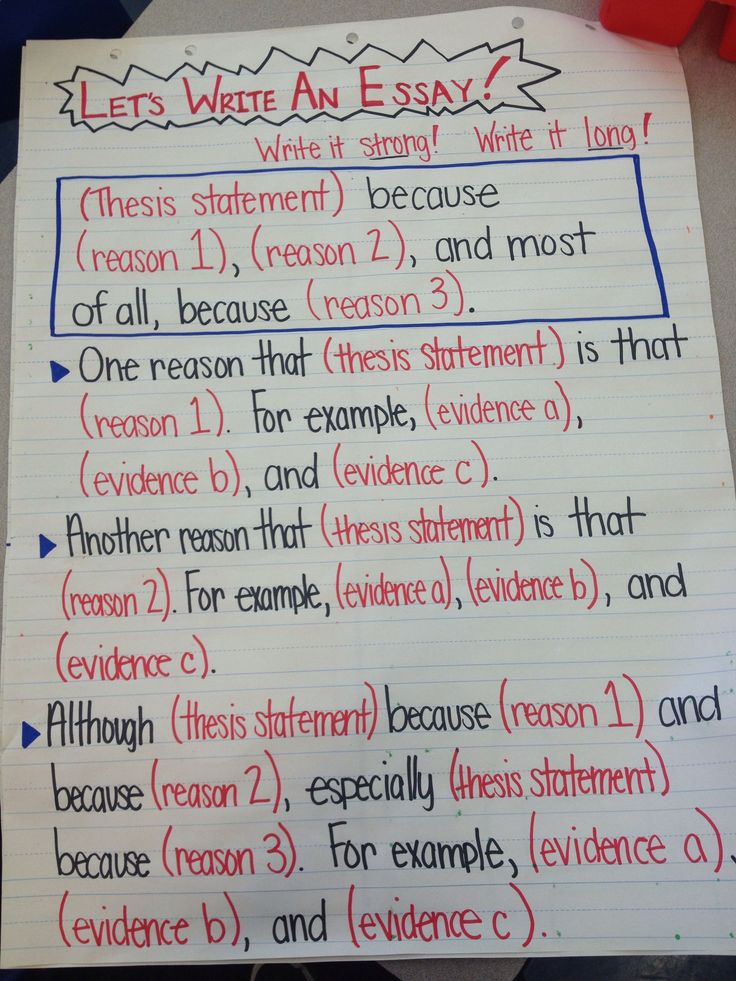 LET'S WRITE AN ESSAY!
Write it strong! Write it long!
(Thesis statement) because
(reason 1), (reason 2), and most
of all, because (reason 3).
One reason that (thesis statement) is that
(reason 1). For example, (evidence a),
(evidence b), and (evidence c).
Another reason that (thesis statement) is that
(reason 2). For example, (evidence a), (evidence b), and
(evidence c).
Although (thesis statement) because (reason 1) and
because (reason 2), especially (thesis statement)
because (reason 3). For example, (evidence a),
(evidence b), and (evidence c).